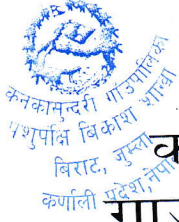 कनकासुन्दरी गाउँपालिका
पशुपंक्षि बिकाश शाखा
बिराट, जुम्ला
कर्णाली प्रदेश, नेपाल